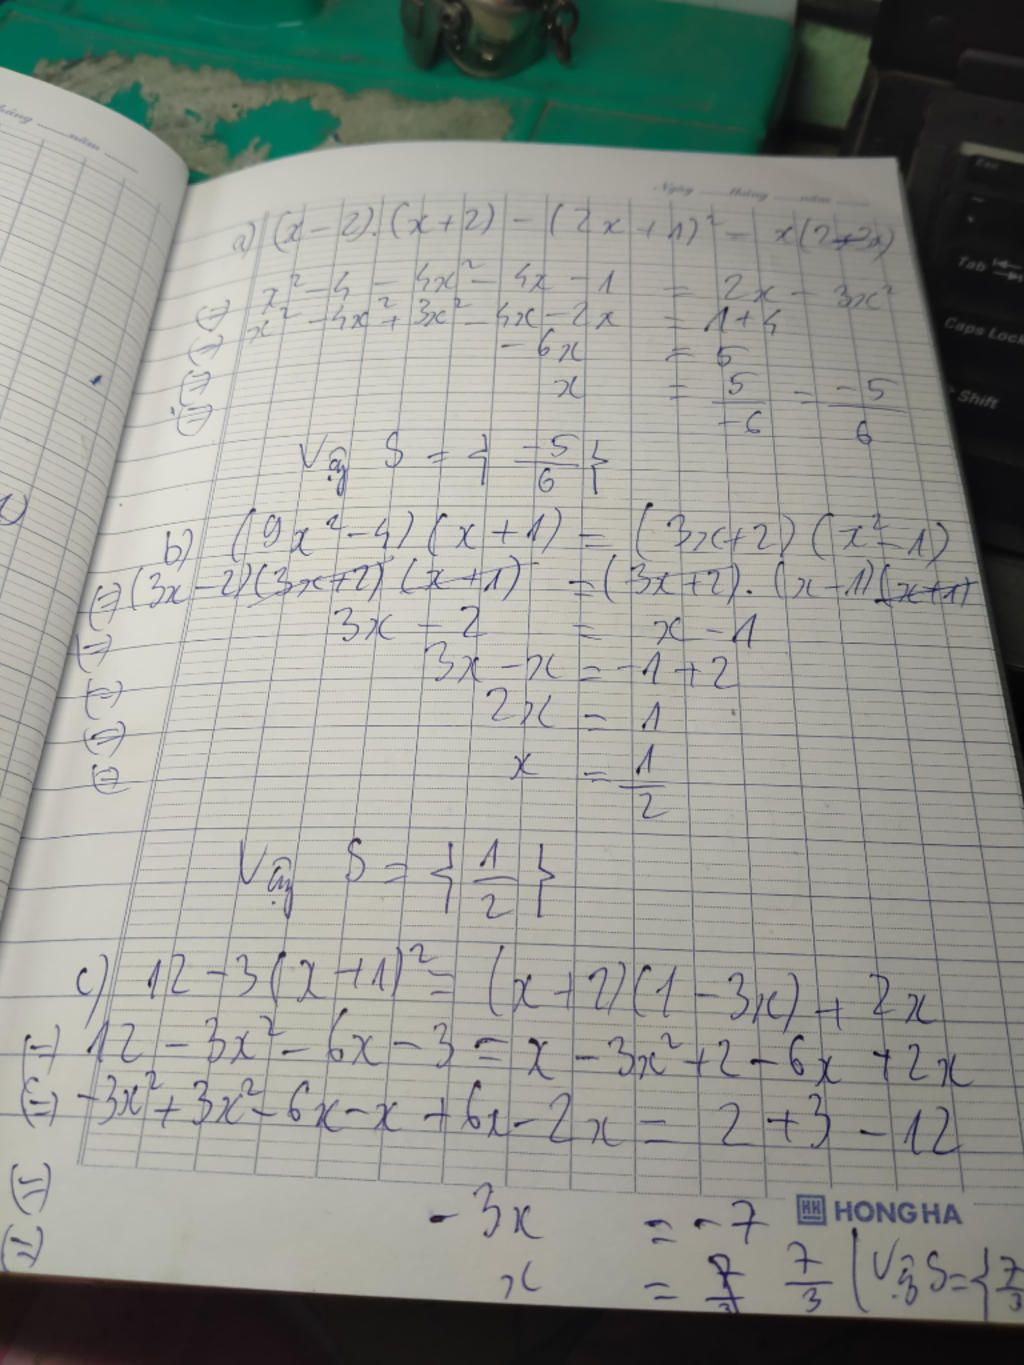 Ngày ......tháng ......năm ......
a) (x-2).(x+2) - (2x+1)² = x(2-3x)
(=) x² - 4 - 4x² - 4x - 1 = 2x - 3x²
(=) x² - 4x² + 3x² - 4x - 2x = 1 + 4
(=) -6x = 5
(=) x = 5/-6 = -5/6
Vậy S = { -5/6 }
b) (9x² - 4)(x+1) = (3x+2)(x²-1)
(=) (3x-2)(3x+2)(x+1) = (3x+2).(x-1)(x+1)
(=) 3x - 2 = x - 1
(=) 3x - x = -1 + 2
(=) 2x = 1
(=) x = 1/2
Vậy S = { 1/2 }
c) 12 - 3(x+1)² = (x+2)(1-3x) + 2x
(=) 12 - 3x² - 6x - 3 = x - 3x² + 2 - 6x + 2x
(=) -3x² + 3x² - 6x - x + 6x - 2x = 2 + 3 - 12
HONG HA
(=) -3x = -7
(=) x = 7/3 7/3 | Vậy S = { 7/3
Tab
Caps Lock
Shift